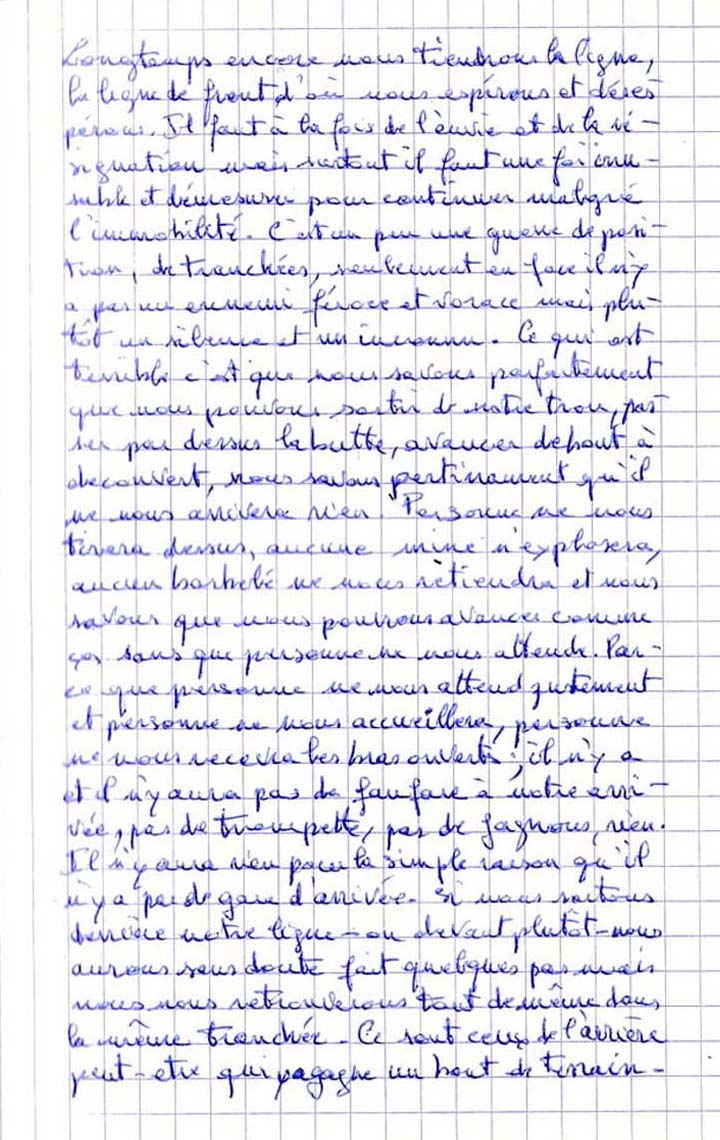 Longtemps encore nous tiendrons la ligne,
la ligne de front d'où nous espérons et déses
pérons. Il faut à la fois de l'envie et de la ré-
signation mais surtout il faut une foi inu-
sable et démesurée pour continuer malgré
l'immobilité. C'est un peu une guerre de posi-
tion, de tranchées, seulement en face il n'y
a pas un ennemi féroce et vorace mais plu-
tôt un silence et un inconnu. Ce qui est
terrible c'est que nous savons parfaitement
que nous pouvons sortir de notre trou, pas
ser par dessus la butte, avancer debout à
decouvert, nous savons pertinamment qu'il
ne nous arrivera rien. Personne ne nous
tirera dessus, aucune mine n'explosera,
aucun barbelé ne nous retiendra et nous
savons que nous pourrons avancer comme
ça, sans que personne ne nous attende. Par-
ce que personne ne nous attend justement
et personne ne nous accueillera, personne
ne nous recevra les bras ouverts ; il n'y a
et il n'y aura pas de fanfare à notre arri-
vée, pas de trompette, pas de fagnons, rien.
Il n'y aura rien pour la simple raison qu'il
n'y a pas de gare d'arrivée. Si nous sortons
derrière notre ligne - ou devant plutôt - nous
aurons sans doute fait quelques pas mais
nous nous retrouverons tout de même dans
la même tranchée. Ce sont ceux de l'arrière
peut-etre qui gagne un bout de terrain -